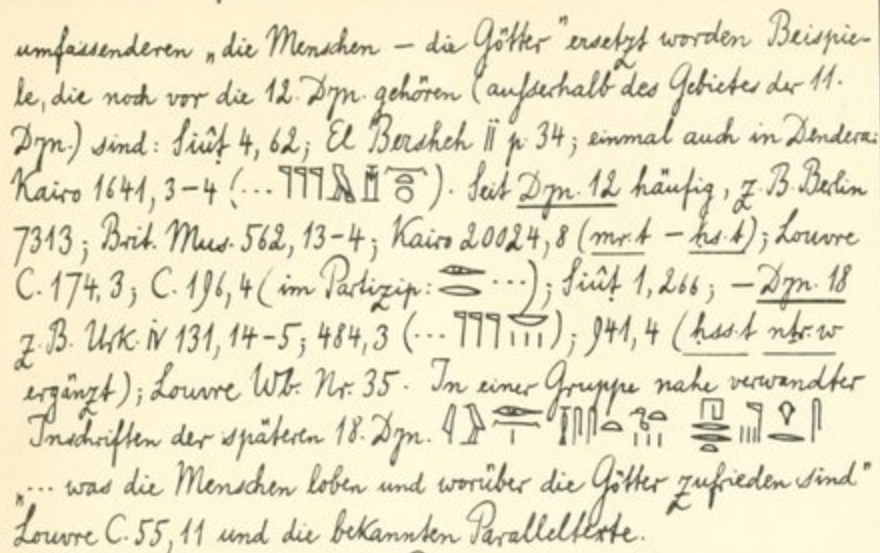 umfassenderen „die Menschen – die Götter" ersetzt worden Beispie-
le, die noch vor die 12. Dyn. gehören (aufserhalb des Gebietes der 11.
Dyn.) sind: Siûṭ 4, 62; El Bersheh II p. 34; einmal auch in Dendera:
Kairo 1641, 3–4 (... 𓊹𓊹𓊹 ). Seit Dyn. 12 häufig, z. B. Berlin
7313; Brit. Mus. 562, 13–4; Kairo 20024, 8 (mr.t – ḥs.t); Louvre
C. 174, 3; C. 196, 4 (im Partizip: ...); Siûṭ 1, 266; – Dyn. 18
z. B. Urk. IV 131, 14–5; 484, 3 (... 𓊹𓊹𓊹 ); 941, 4 (ḥss.t nṯr.w
ergänzt); Louvre Wb. Nr. 35. In einer Gruppe nahe verwandter
Inschriften der späteren 18. Dyn.
„... was die Menschen loben und worüber die Götter zufrieden sind"
Louvre C. 55, 11 und die bekannten Paralleltexte.